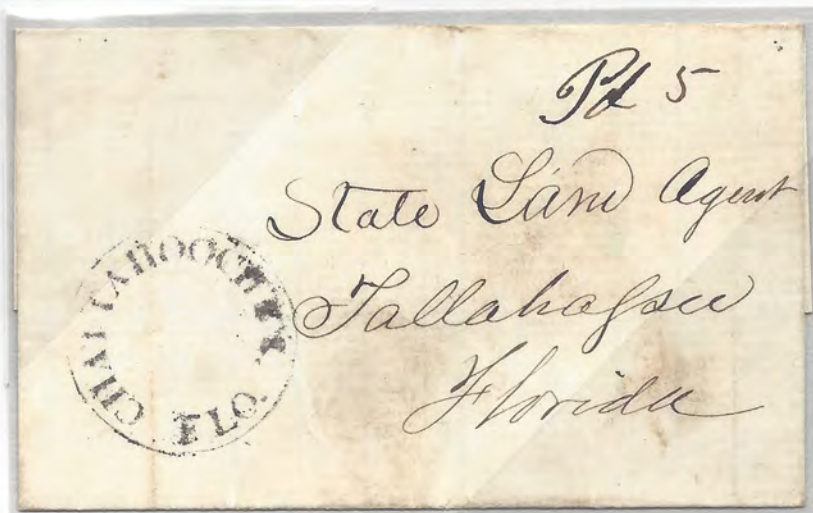 Pd 5
State Land Agent
Tallahassee
Florida
CHATTAHOOCHEE.
FLO.